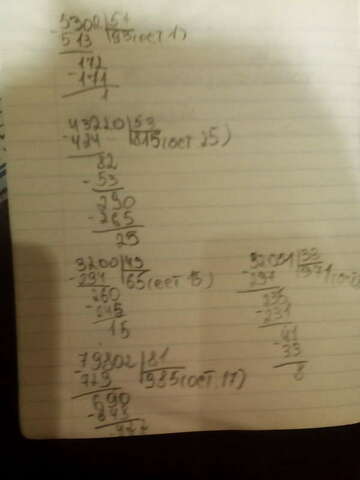 5302|57
- 513 93(ост 1)
172
- 171
1
43220|53
- 424 815(ост 25)
82
- 53
290
- 265
25
3200|49 32051|33
- 294 65(ост 15) - 297 971
260 235
- 245 - 231
15 41
- 33
8
79802|81
- 729 985(ост.17)
690
- 648
422